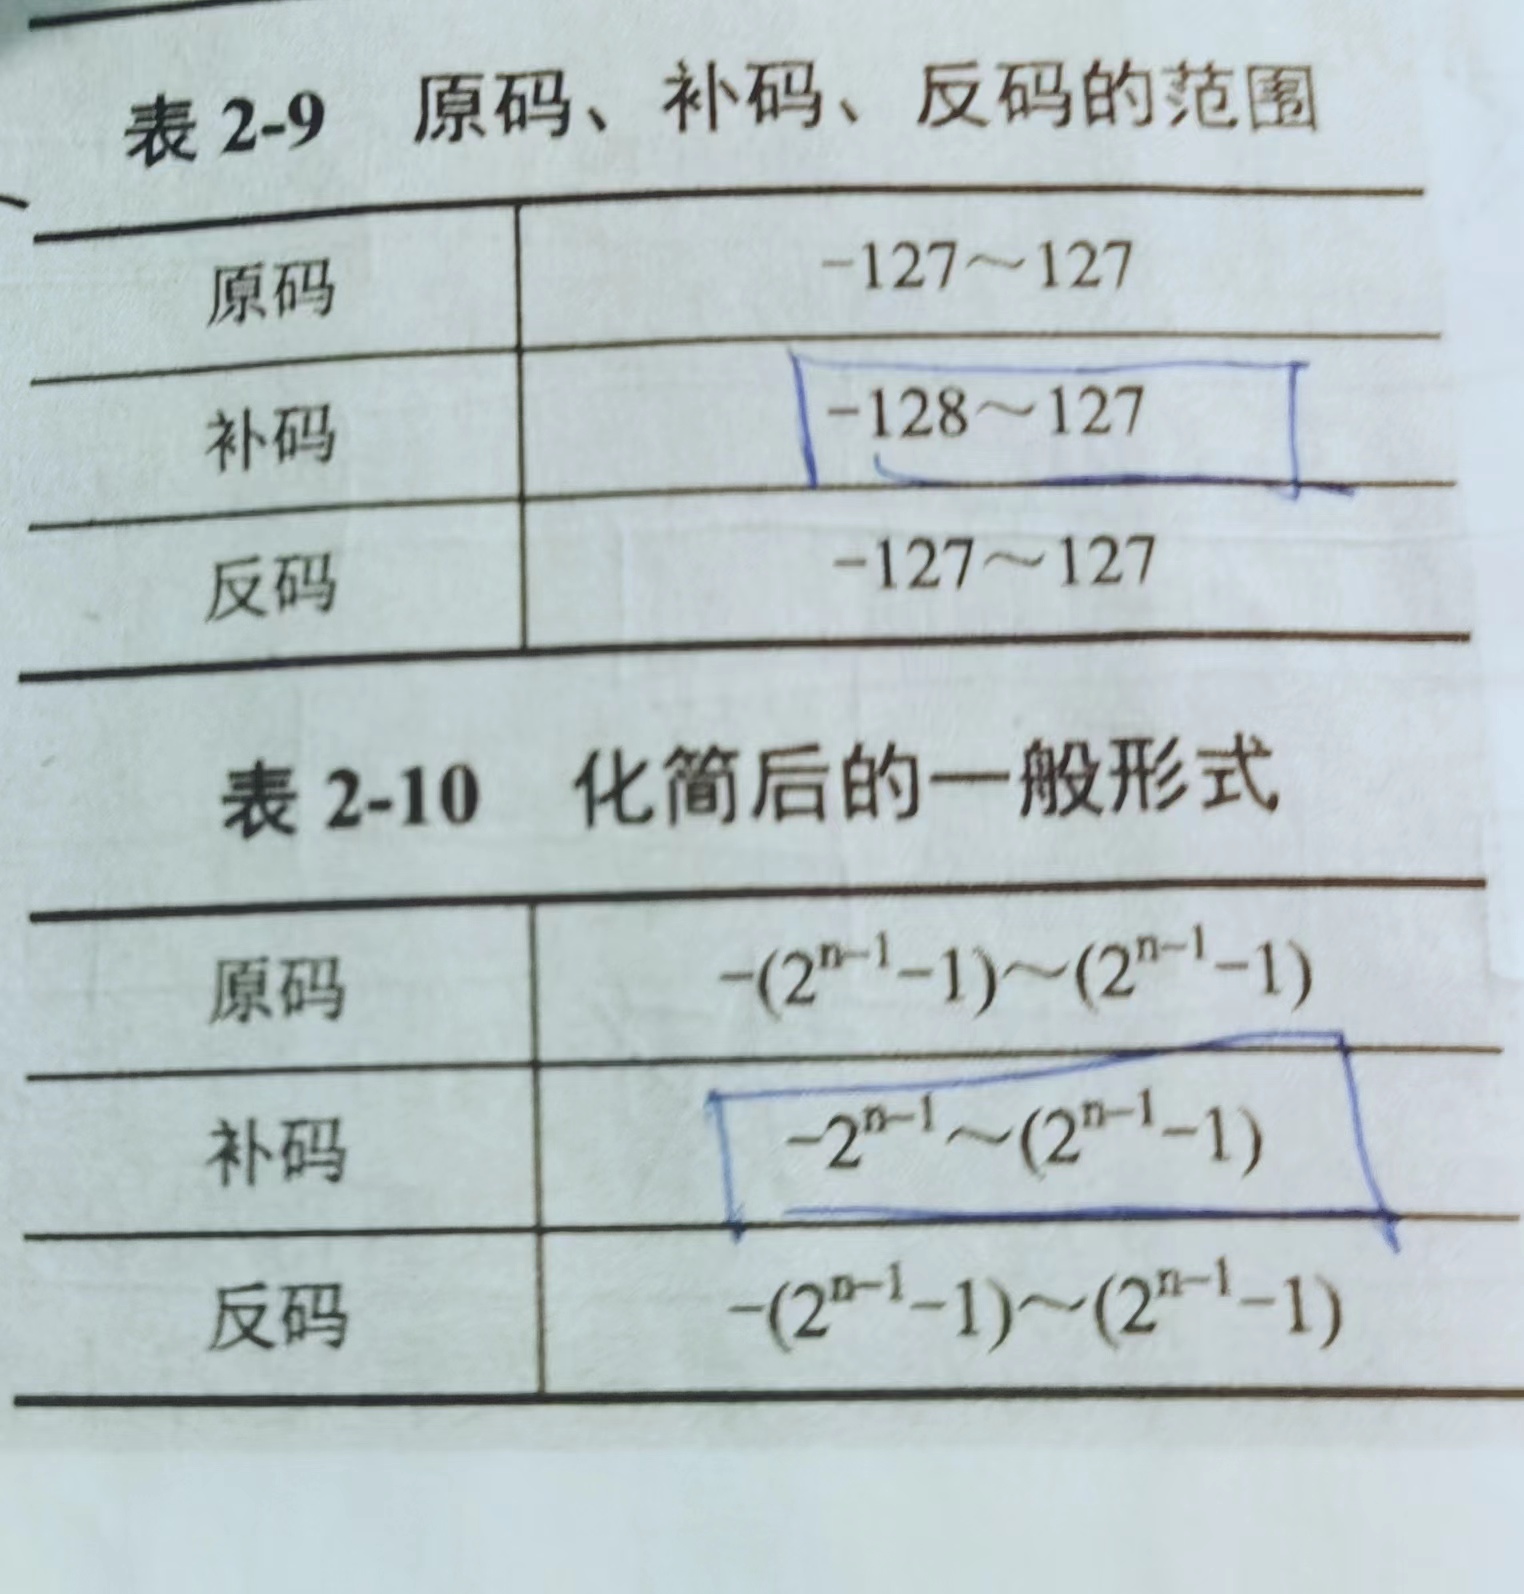 表 2-9 原码、补码、反码的范围
原码 -127～127
补码 -128～127
反码 -127～127
表 2-10 化简后的一般形式
原码 -(2ⁿ⁻¹-1)～(2ⁿ⁻¹-1)
补码 -2ⁿ⁻¹～(2ⁿ⁻¹-1)
反码 -(2ⁿ⁻¹-1)～(2ⁿ⁻¹-1)